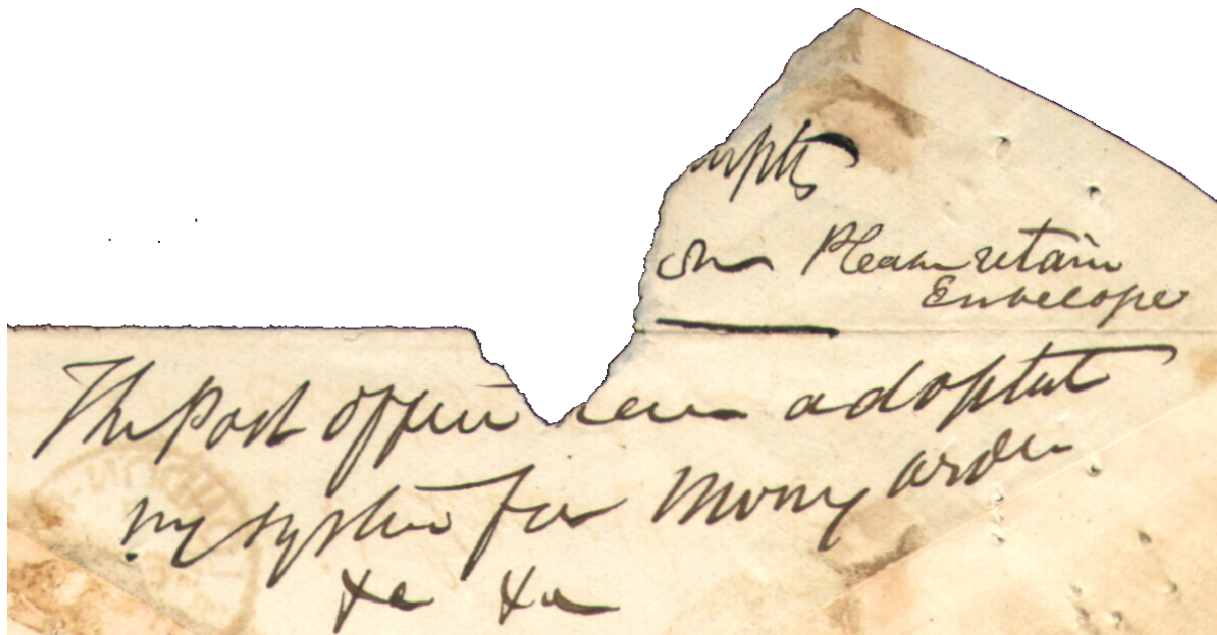 on Please retain
Envelope
The Post office have adopted
my system for Money order
&c &c